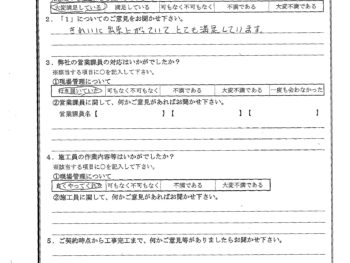 大変満足している 満足している 可も不可もなく 不満である 大変不満である
2．「1」についてのご意見をお聞かせ下さい。
きれいに 仕上がっていて とても満足しています。
3．弊社の営業課員の対応はいかがでしたか？
※該当する項目に○を記入して下さい。
①現場管理について
行き届いていた 可もなく不可もなく 不満である 大変不満である 一度も会わなかった
②営業課員に関して、何かご意見があればお聞かせ下さい。
営業課員名【 】【 】【
4．施工員の作業内容等はいかがでしたか？
※該当する項目に○を記入して下さい。
①現場管理について
良くやってくれた 可もなく不可もなく 不満である 大変不満である
②施工員に関して、何かご意見があればお聞かせ下さい。
5．ご契約時点から工事完工まで、何かご意見等がありましたらお聞かせ下さい。